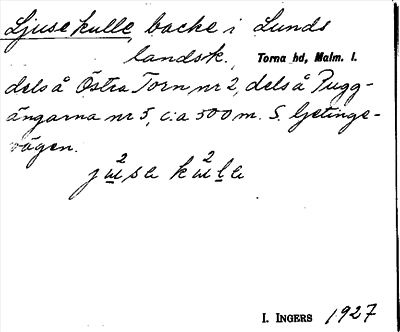 Ljuse kulle, backe i Lunds
landsk., Torna hd, Malm. l.
dels å Östra Torn nr 2, dels å Pugg-
ängarna nr 5, c:a 500 m. S. Getinge-
vägen.